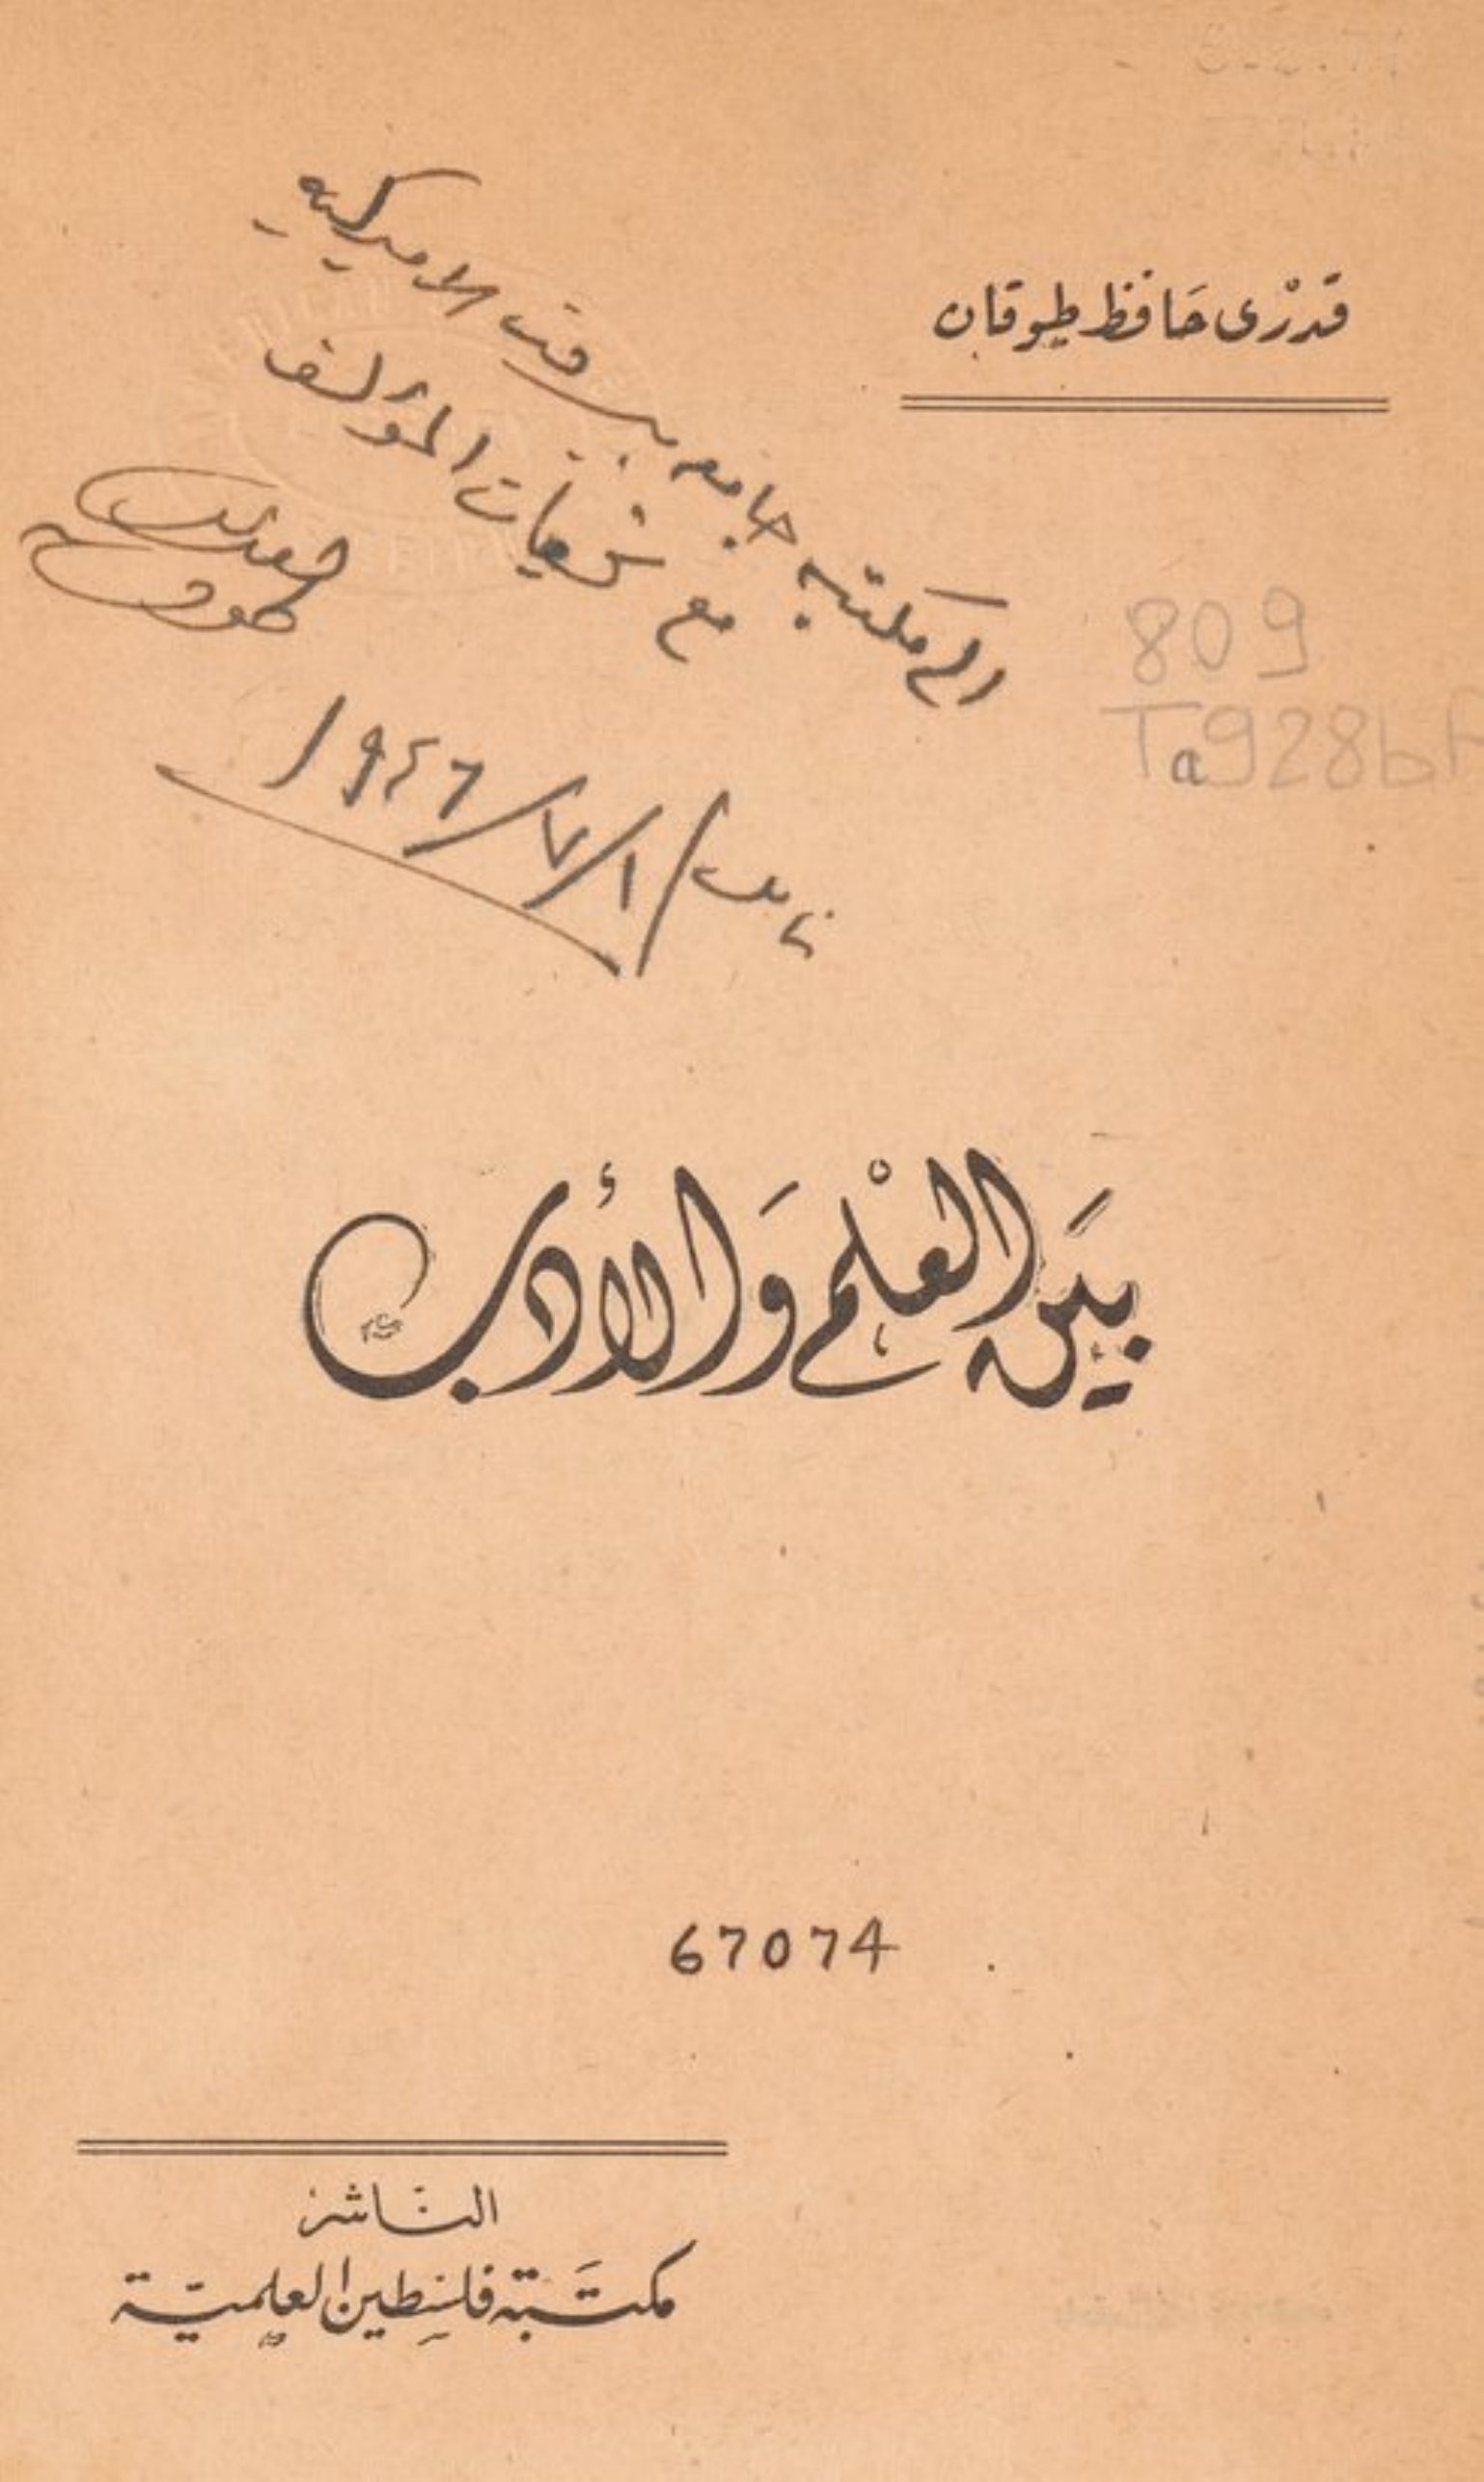 قدرْى حَافظ طوقان
الى مكتبة جامعة بيروت الاميركية
مع تحيات المؤلف
طوقان
نابلس / ١ / ٧ / ١٩٤٦
809
Ta928bA
بَين العلْم وَالأدب
67074
النَّاشر
مكتَبة فلسِطين العلميّة